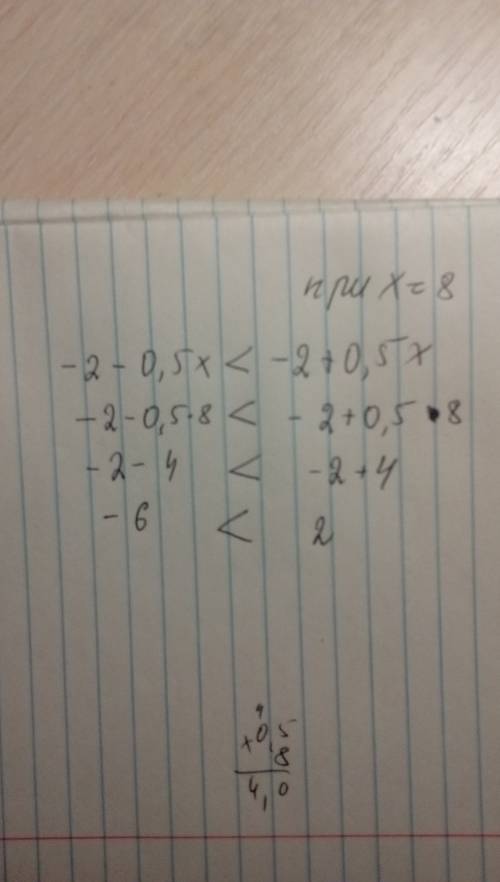 при x = 8
-2 - 0,5x < -2 + 0,5x
-2 - 0,5·8 < -2 + 0,5·8
-2 - 4 < -2 + 4
-6 < 2
4
×0,5
8
4,0